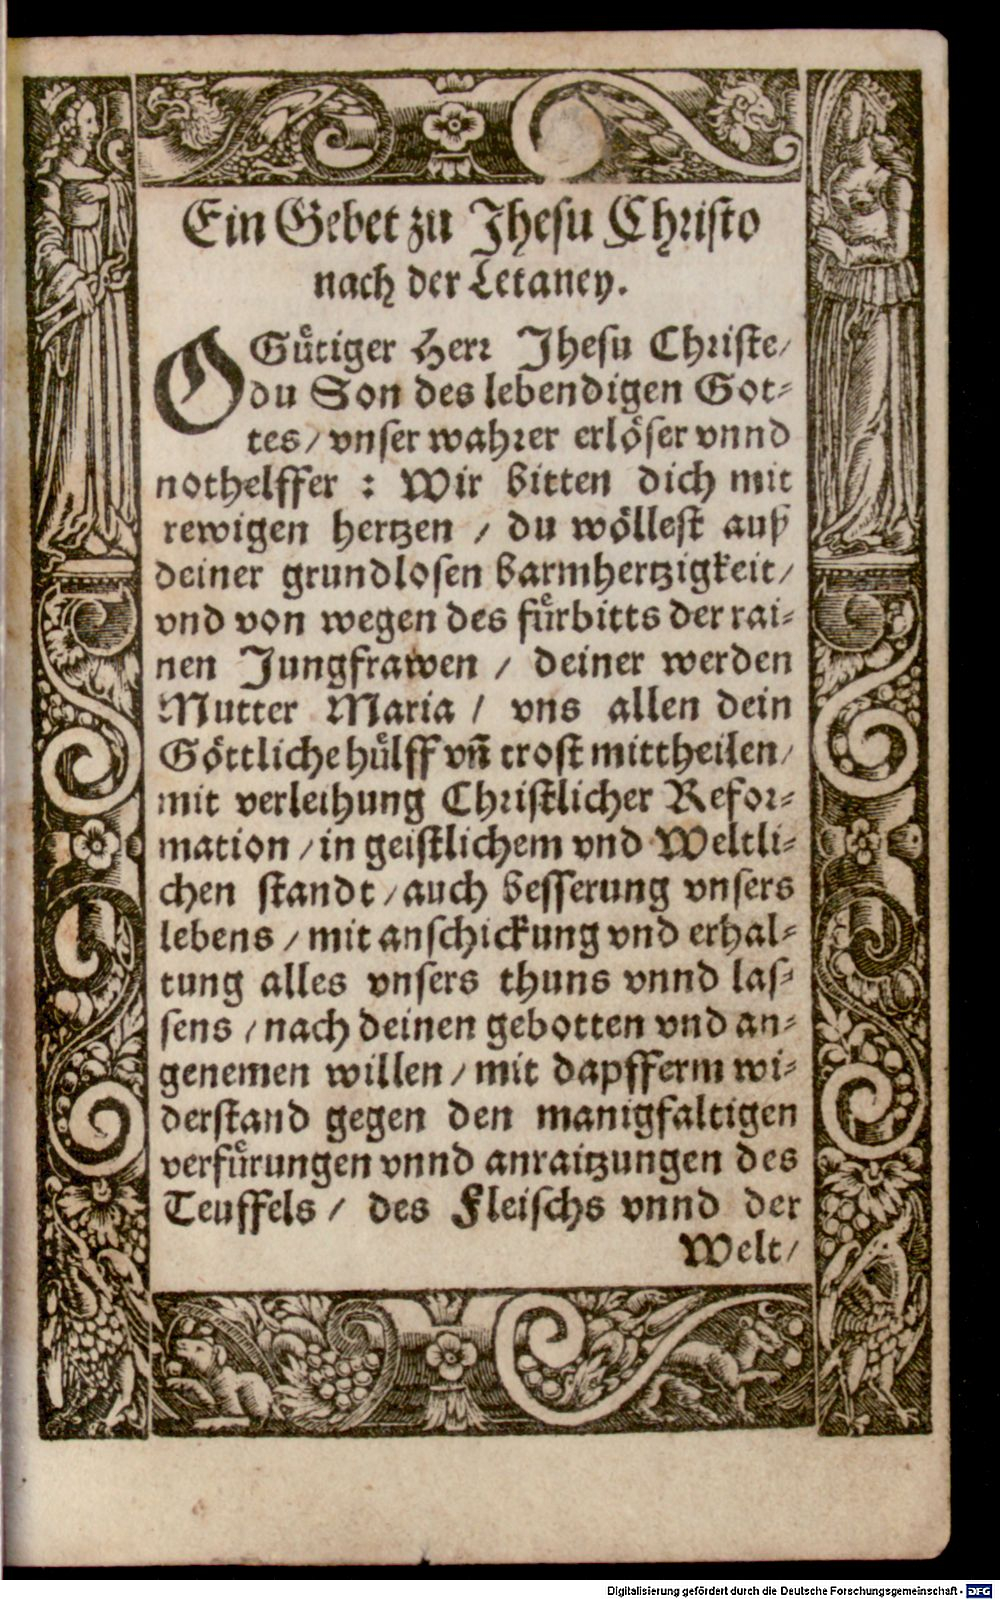 Ein Gebet zu Jhesu Christo
nach der Letaney.
O Gütiger Herr Jhesu Christe/
du Son des lebendigen Got-
tes/ vnser wahrer erlöser vnnd
nothelffer : Wir bitten dich mit
rewigen hertzen / du wöllest auß
deiner grundlosen barmhertzigkeit/
vnd von wegen des fürbitts der rai-
nen Jungfrawen / deiner werden
Mutter Maria / vns allen dein
Göttliche hülff vñ trost mittheilen/
mit verleihung Christlicher Refor-
mation / in geistlichem vnd Weltli-
chen standt / auch besserung vnsers
lebens / mit anschickung vnd erhal-
tung alles vnsers thuns vnnd las-
sens / nach deinen gebotten vnd an-
genemen willen / mit dapfferm wi-
derstand gegen den manigfaltigen
verfürungen vnnd anraitzungen des
Teuffels / des Fleischs vnnd der
Welt/
Digitalisierung gefördert durch die Deutsche Forschungsgemeinschaft - DFG